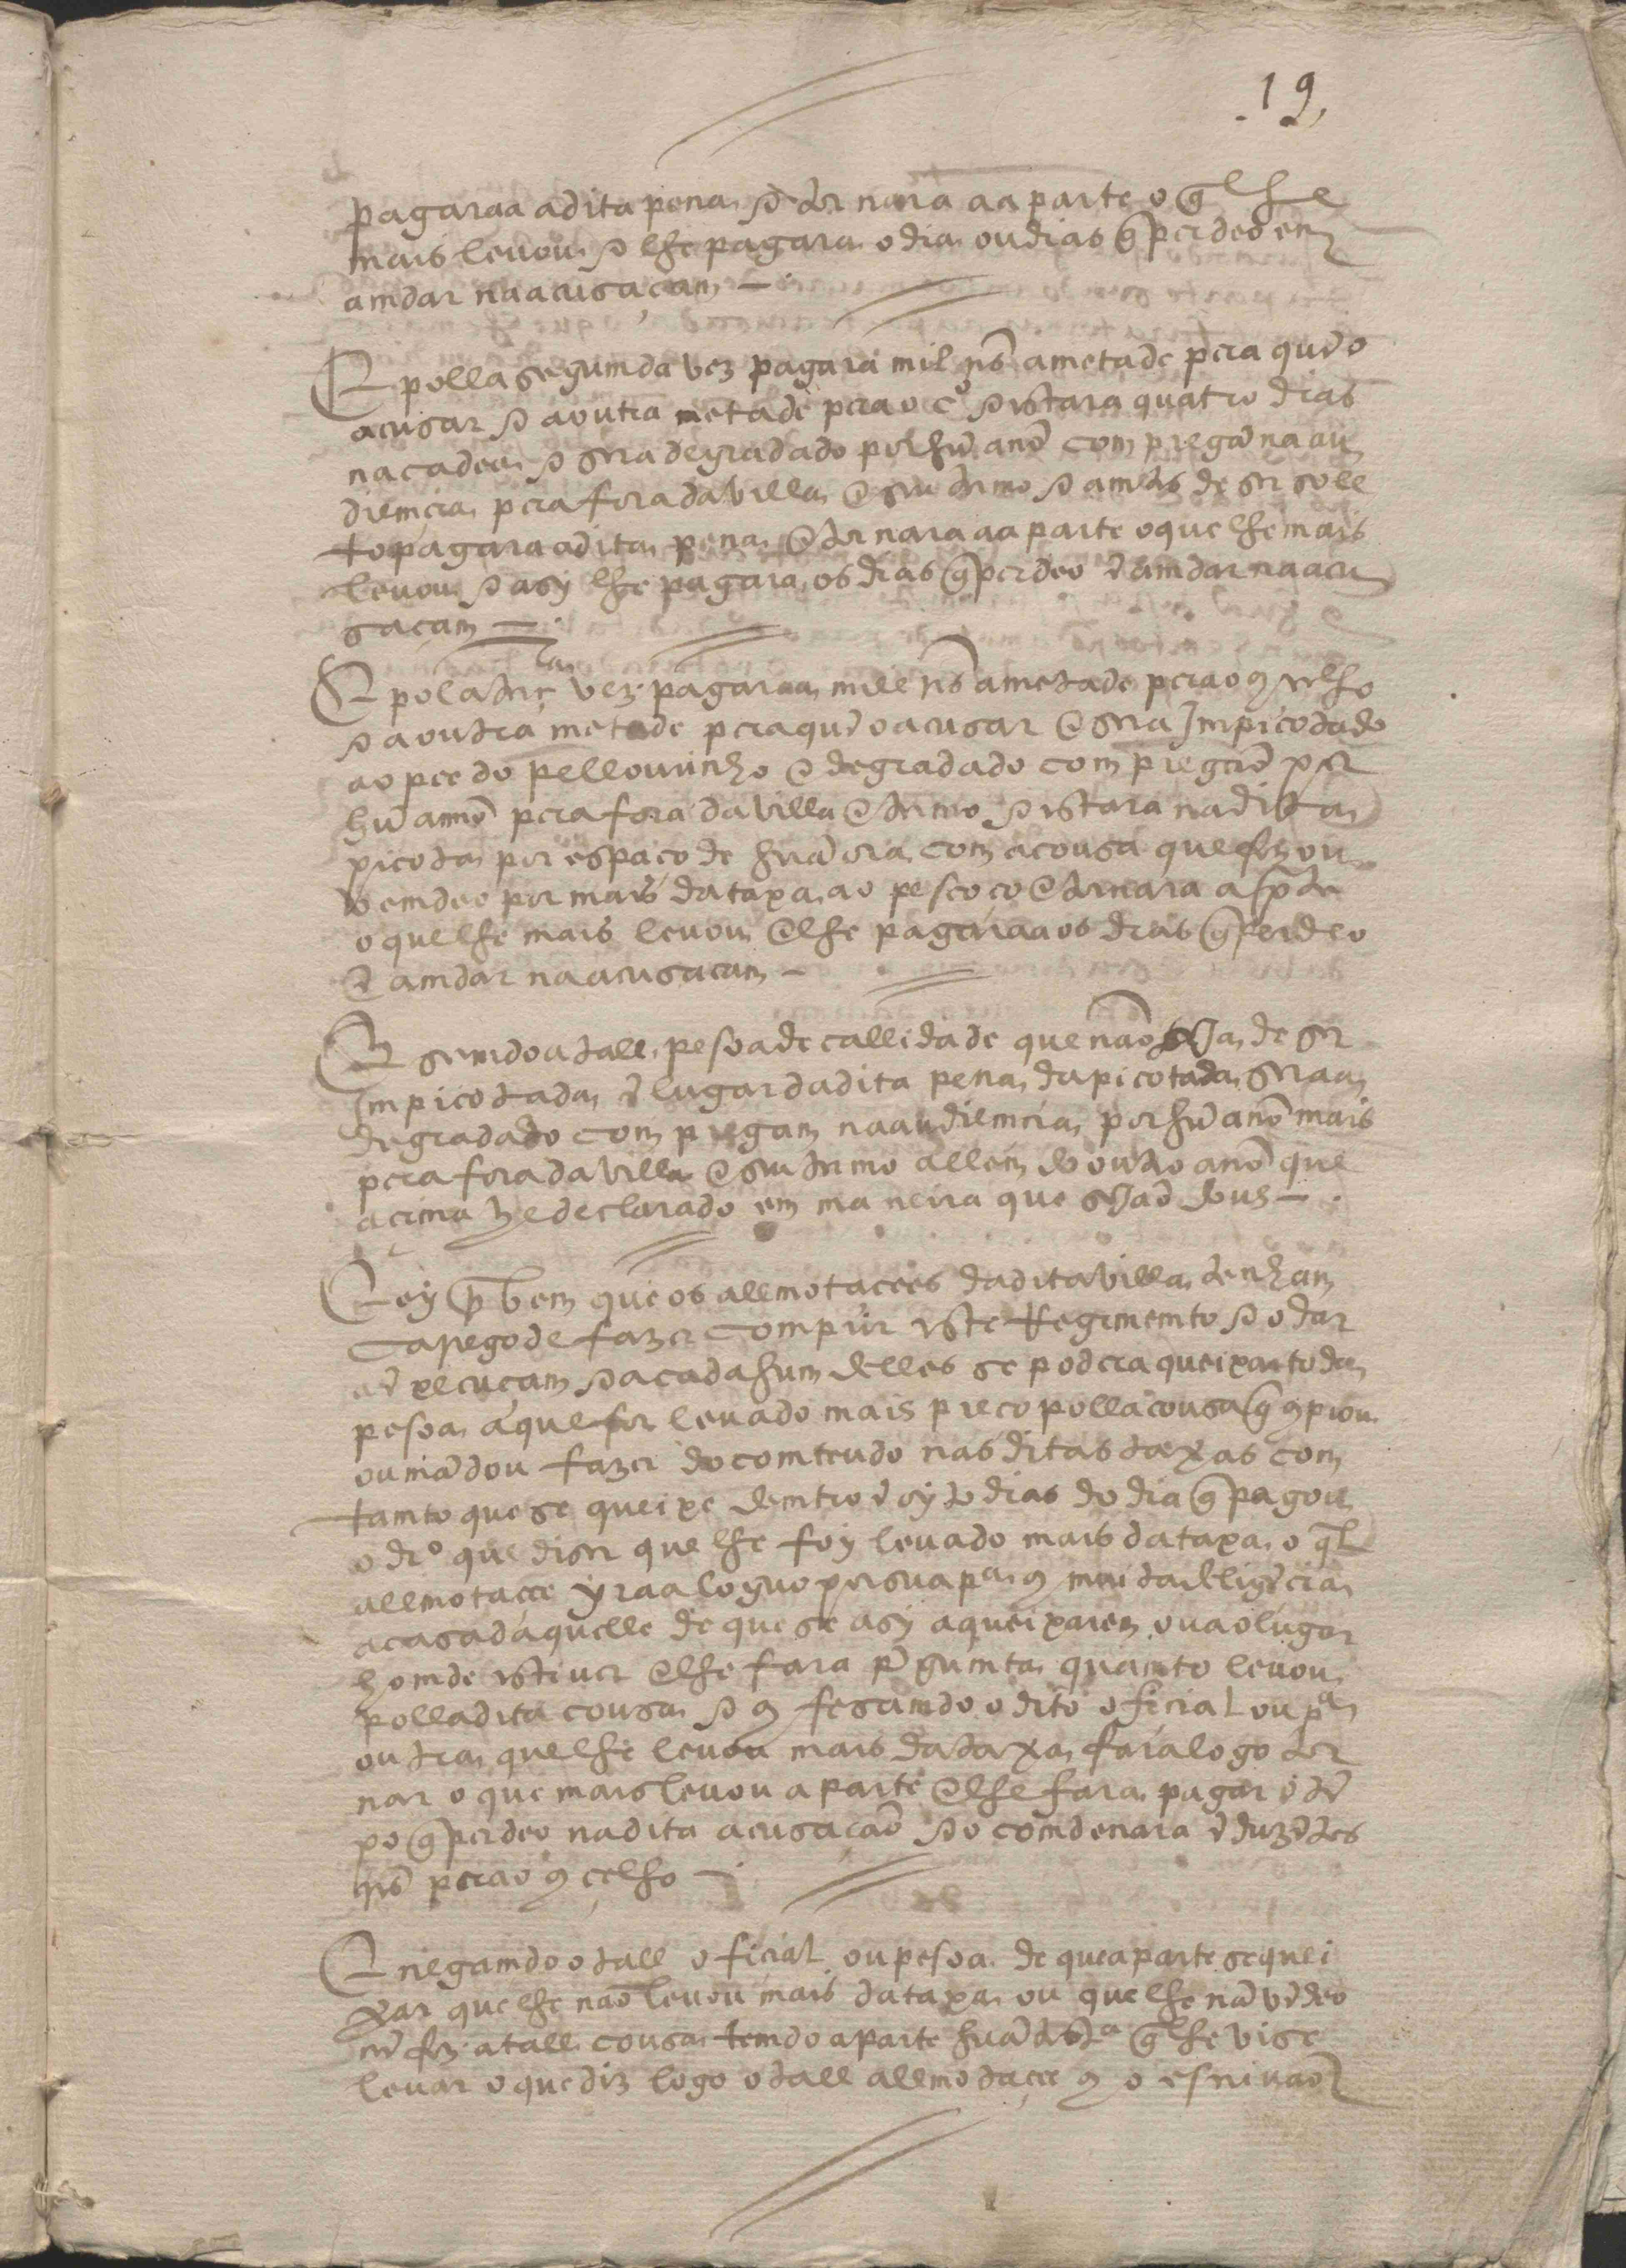 19
pagaraa adita pena e tornara aa parte o q̃ lhe
mais leuou e lhe pagara o dia ou dias q̃ perdeo em
amdar na acusaçam —
E polla segumda vez pagara mil rs̃ ametade pera quẽ o
acusar e a outra metade pera o cº e estara quatro dias
na cadea e sera degradado por huũ anno com pregã na au
diemçia pera fora da villa e seu termo e amtes de ser soll
to pagara a dita pena e tornara aa parte o que lhe mais
leuou e asy lhe pagara os dias q̃ perdeo ẽ amdar na acu
saçam —
E pola terçra vez pagaraa mill rs̃ ametade pera o 9selho
e a outra metade pera quẽ o acusar e sera Impicotado
ao pee do pellourinho e degradado com pregão por
huũ anno pera fora da villa e termo e estara na dita
picota por espaço de huã ora com a cousa que fez ou
vemdeo por mais da taxa ao pescoço e tornara a pte
o que lhe mais leuou e lhe pagaraa os dias q̃ perdeo
ẽ amdar na acusacam —
E semdo a tall pesoa de callidade que não seja de ser
Impicotada ẽ lugar da dita pena da picotada seraa
degradado com pregam na audiemcia por huũ anno mais
pera fora da villa e seu termo allem do outro anno que
acima he declarado em maneira que sejaõ dous —
E ey por bem que os allmotacees da dita villa tenham
carrego de fazer comprir este Regimento e o dar
a ẽxecuçam e a cada hum delles se podera queixar toda
pesoa a que for leuado mais preço polla cousa q̃ 9prou
ou mãdou fazer do comteudo nas ditas taxas com
tamto que se queixe demtro ẽ oyto dias do dia q̃ pagou
o drº que diser que lhe foy leuado mais da taxa o ql̃
allmotacee yraa loguo per sua pª 9 muita deligẽcia
a casa daquelle de que se asy aqueixarem ou ao lugar
homde estiuer e lhe fara pregumta quamto leuou
polla dita cousa e 9fesamdo o dito oficial ou pª
outra que lhe leuou mais da taxa fara logo tor
nar o que mais leuou a parte e lhe fara pagar o tẽ
po q̃ perdeo na dita acusaçaõ e o comdenara ẽ duzẽtos
rs̃ pera o 9çelho —
E negamdo o tall oficial ou pesoa de que a parte se quei
xar que lhe não leuou mais da taxa ou que lhe nã vẽdeo
nẽ fez a tall cousa temdo a parte huã tstª q̃ lhe vise
leuar o que diz logo o tall allmotaçee 9 o escriuaõ